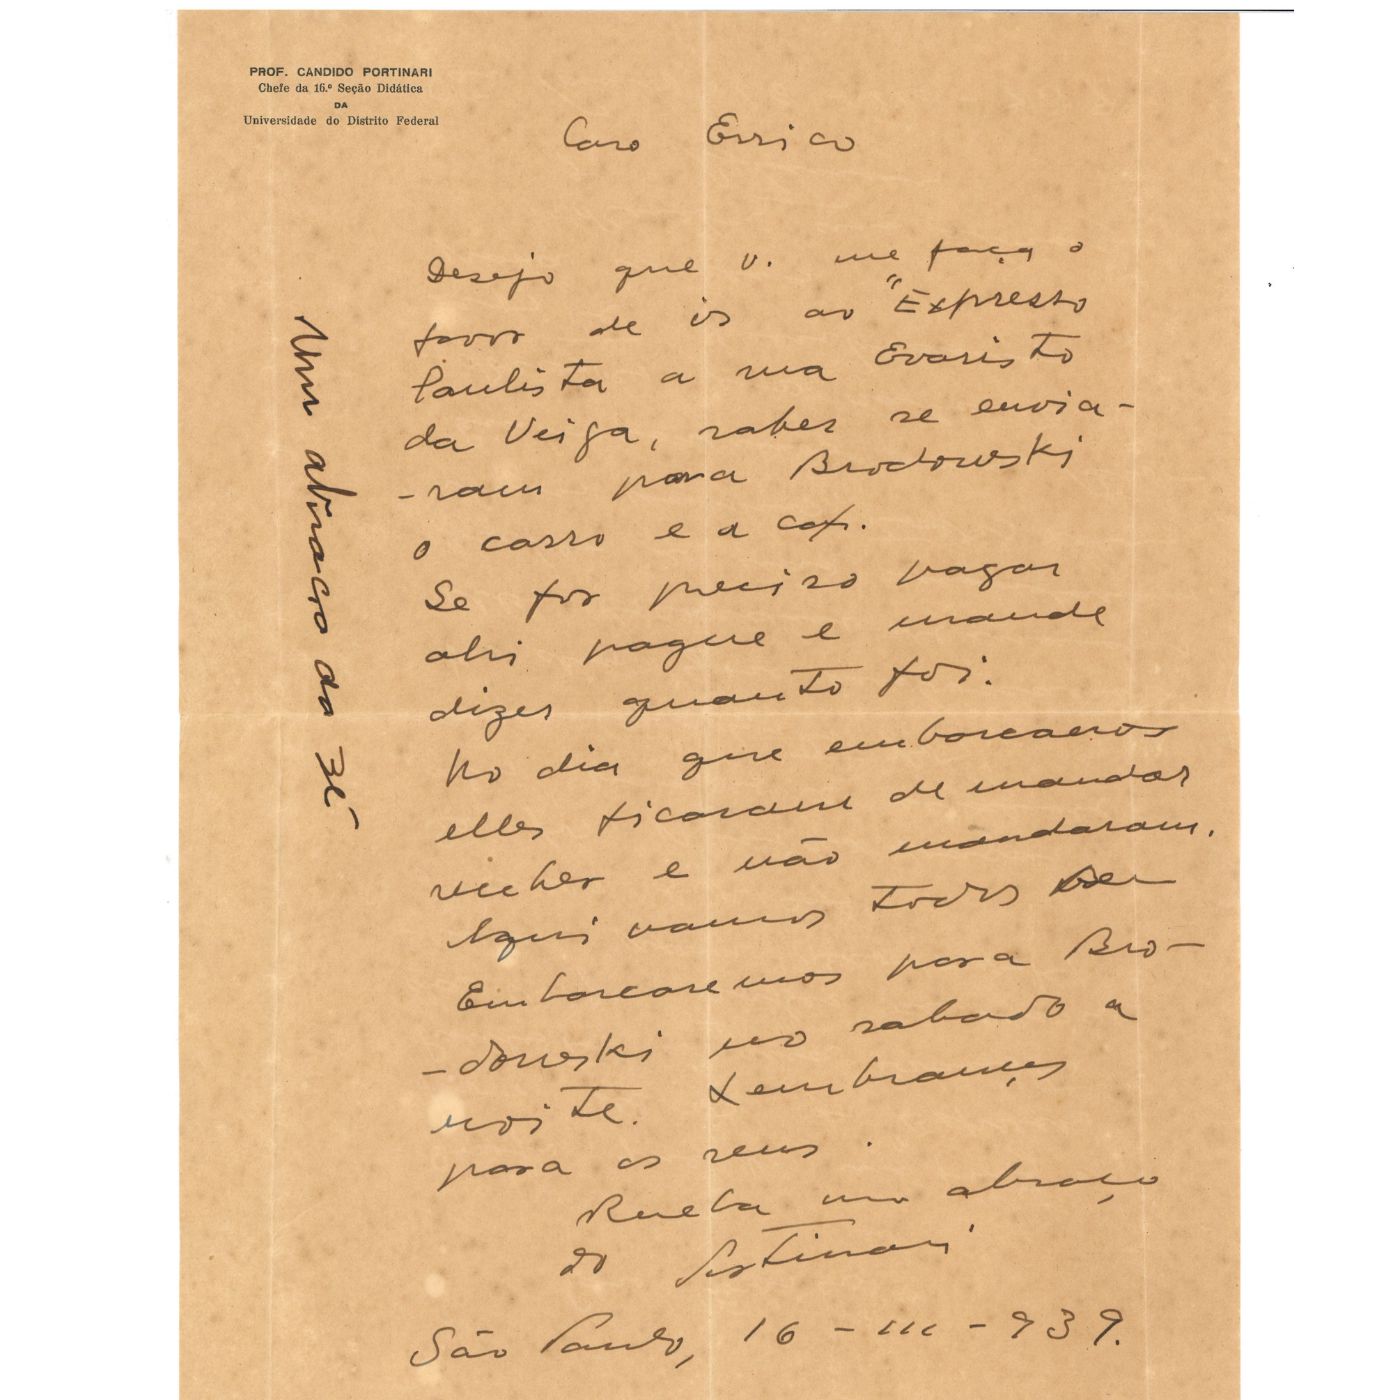 PROF. CANDIDO PORTINARI
Chefe da 16.ª Seção Didática
DA
Universidade do Distrito Federal
Caro Errico
Desejo que v. me faça o
favor de ir ao "Expresso
Paulista a rua Evaristo
da Veiga, saber se envia-
-ram para Brodowski
o carro e a
Se for preciso pagar
ahi pague e mande
dizer quanto foi.
No dia que embarcamos
elles ficaram de mandar
receber e não mandaram.
Aqui vamos todos bem
Embarcaremos para Bro-
-dowski no sabado a
noite. Lembranças
para os seus.
Receba um abraço
do Portinari
São Paulo, 16-III-939.
Um abraço da Zé